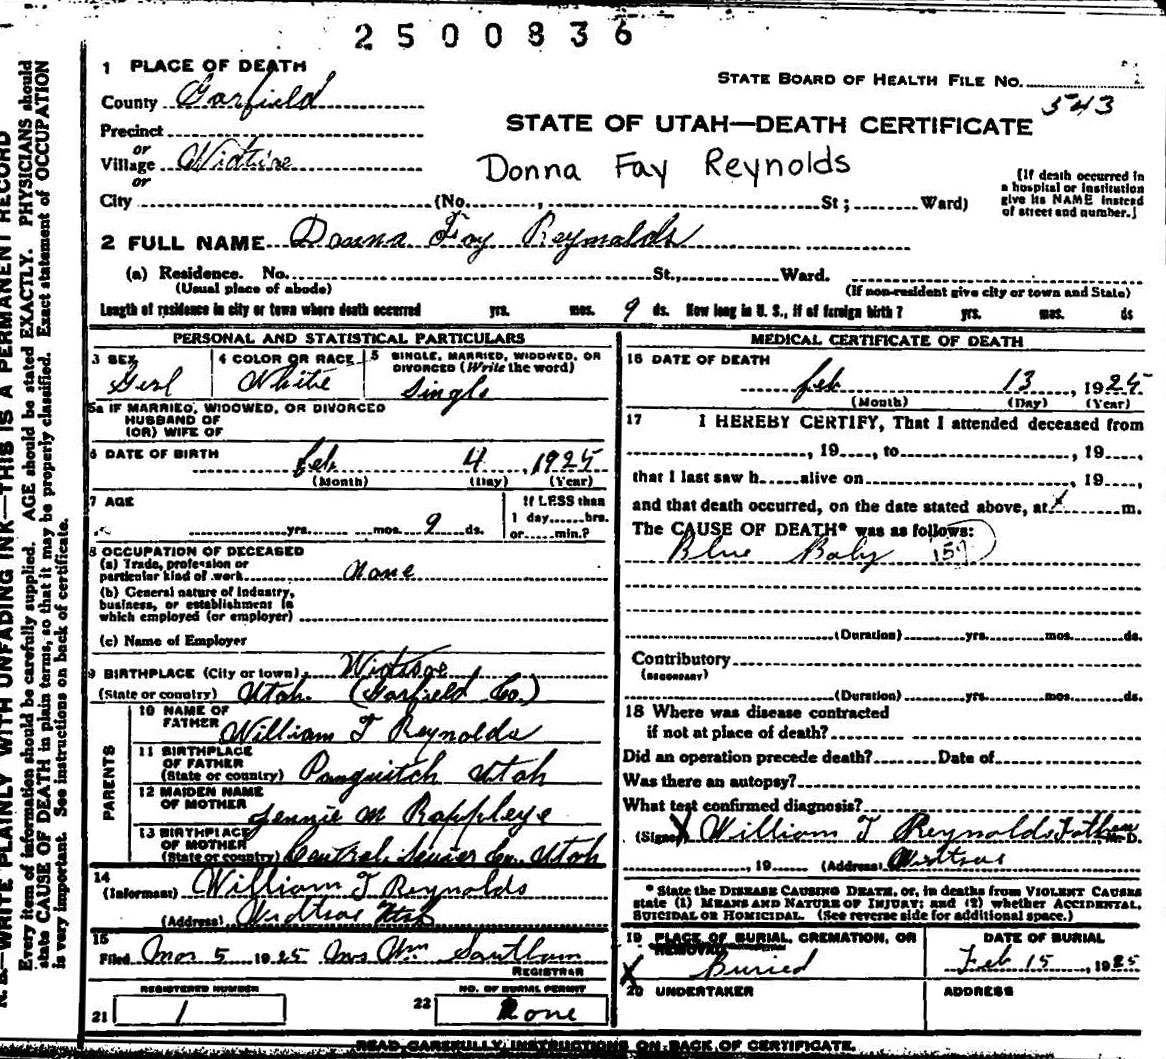 2500836
1 PLACE OF DEATH
STATE BOARD OF HEALTH FILE NO.
County Garfield
543
Precinct
or
STATE OF UTAH—DEATH CERTIFICATE
Village
or
Donna Fay Reynolds
[If death occurred in
a hospital or institution
give its NAME instead
of street and number.]
City (No. , St ; Ward)
2 FULL NAME Donna Fay Reynolds
(a) Residence. No. St., Ward.
(Usual place of abode) (If non-resident give city or town and State)
Length of residence in city or town where death occurred yrs. mos. 9 ds. How long in U. S., if of foreign birth ? yrs. mos. ds
PERSONAL AND STATISTICAL PARTICULARS
3 SEX
Girl
4 COLOR OR RACE
White
5 SINGLE, MARRIED, WIDOWED, OR
DIVORCED (Write the word)
Single
5a IF MARRIED, WIDOWED, OR DIVORCED
HUSBAND OF
(OR) WIFE OF
6 DATE OF BIRTH
Feb. 4 , 1925
(Month) (Day) (Year)
7 AGE
yrs. mos. 9 ds.
If LESS than
1 day hrs.
or min.?
8 OCCUPATION OF DECEASED
(a) Trade, profession or
particular kind of work none
(b) General nature of industry,
business, or establishment in
which employed (or employer)
(c) Name of Employer
9 BIRTHPLACE (City or town) Widtsoe
(State or country) Utah. (Garfield Co.)
PARENTS
10 NAME OF
FATHER William T Reynolds
11 BIRTHPLACE
OF FATHER
(State or country) Panguitch Utah
12 MAIDEN NAME
OF MOTHER Jennie M Rappleye
13 BIRTHPLACE
OF MOTHER
(State or country) Central Sevier Co. Utah
14
(Informant) William T Reynolds
(Address) Utah
15
Filed Mar 5 1925 Mrs Wm
REGISTRAR
REGISTERED NUMBER
21 1
NO. OF BURIAL PERMIT
22 None
MEDICAL CERTIFICATE OF DEATH
16 DATE OF DEATH
Feb 13 , 1925
(Month) (Day) (Year)
17 I HEREBY CERTIFY, That I attended deceased from
, 19 , to , 19 ,
that I last saw h alive on , 19 ,
and that death occurred, on the date stated above, at m.
The CAUSE OF DEATH* was as follows:
Blue Baby 157
(Duration) yrs. mos. ds.
Contributory
(SECONDARY)
(Duration) yrs. mos. ds.
18 Where was disease contracted
if not at place of death?
Did an operation precede death? Date of
Was there an autopsy?
What test confirmed diagnosis?
(Signed) X William T Reynolds Father M. D.
, 19 (Address)
* State the DISEASE CAUSING DEATH, or, in deaths from VIOLENT CAUSES
state (1) MEANS AND NATURE OF INJURY; and (2) whether ACCIDENTAL,
SUICIDAL OR HOMICIDAL. (See reverse side for additional space.)
19 PLACE OF BURIAL, CREMATION, OR
REMOVAL
X Buried
DATE OF BURIAL
Feb 15 , 1925
20 UNDERTAKER
ADDRESS
READ CAREFULLY INSTRUCTIONS ON BACK OF CERTIFICATE.
N. B.—WRITE PLAINLY WITH UNFADING INK—THIS IS A PERMANENT RECORD
Every item of information should be carefully supplied. AGE should be stated EXACTLY. PHYSICIANS should
state CAUSE OF DEATH in plain terms, so that it may be properly classified. Exact statement of OCCUPATION
is very important. See instructions on back of certificate.